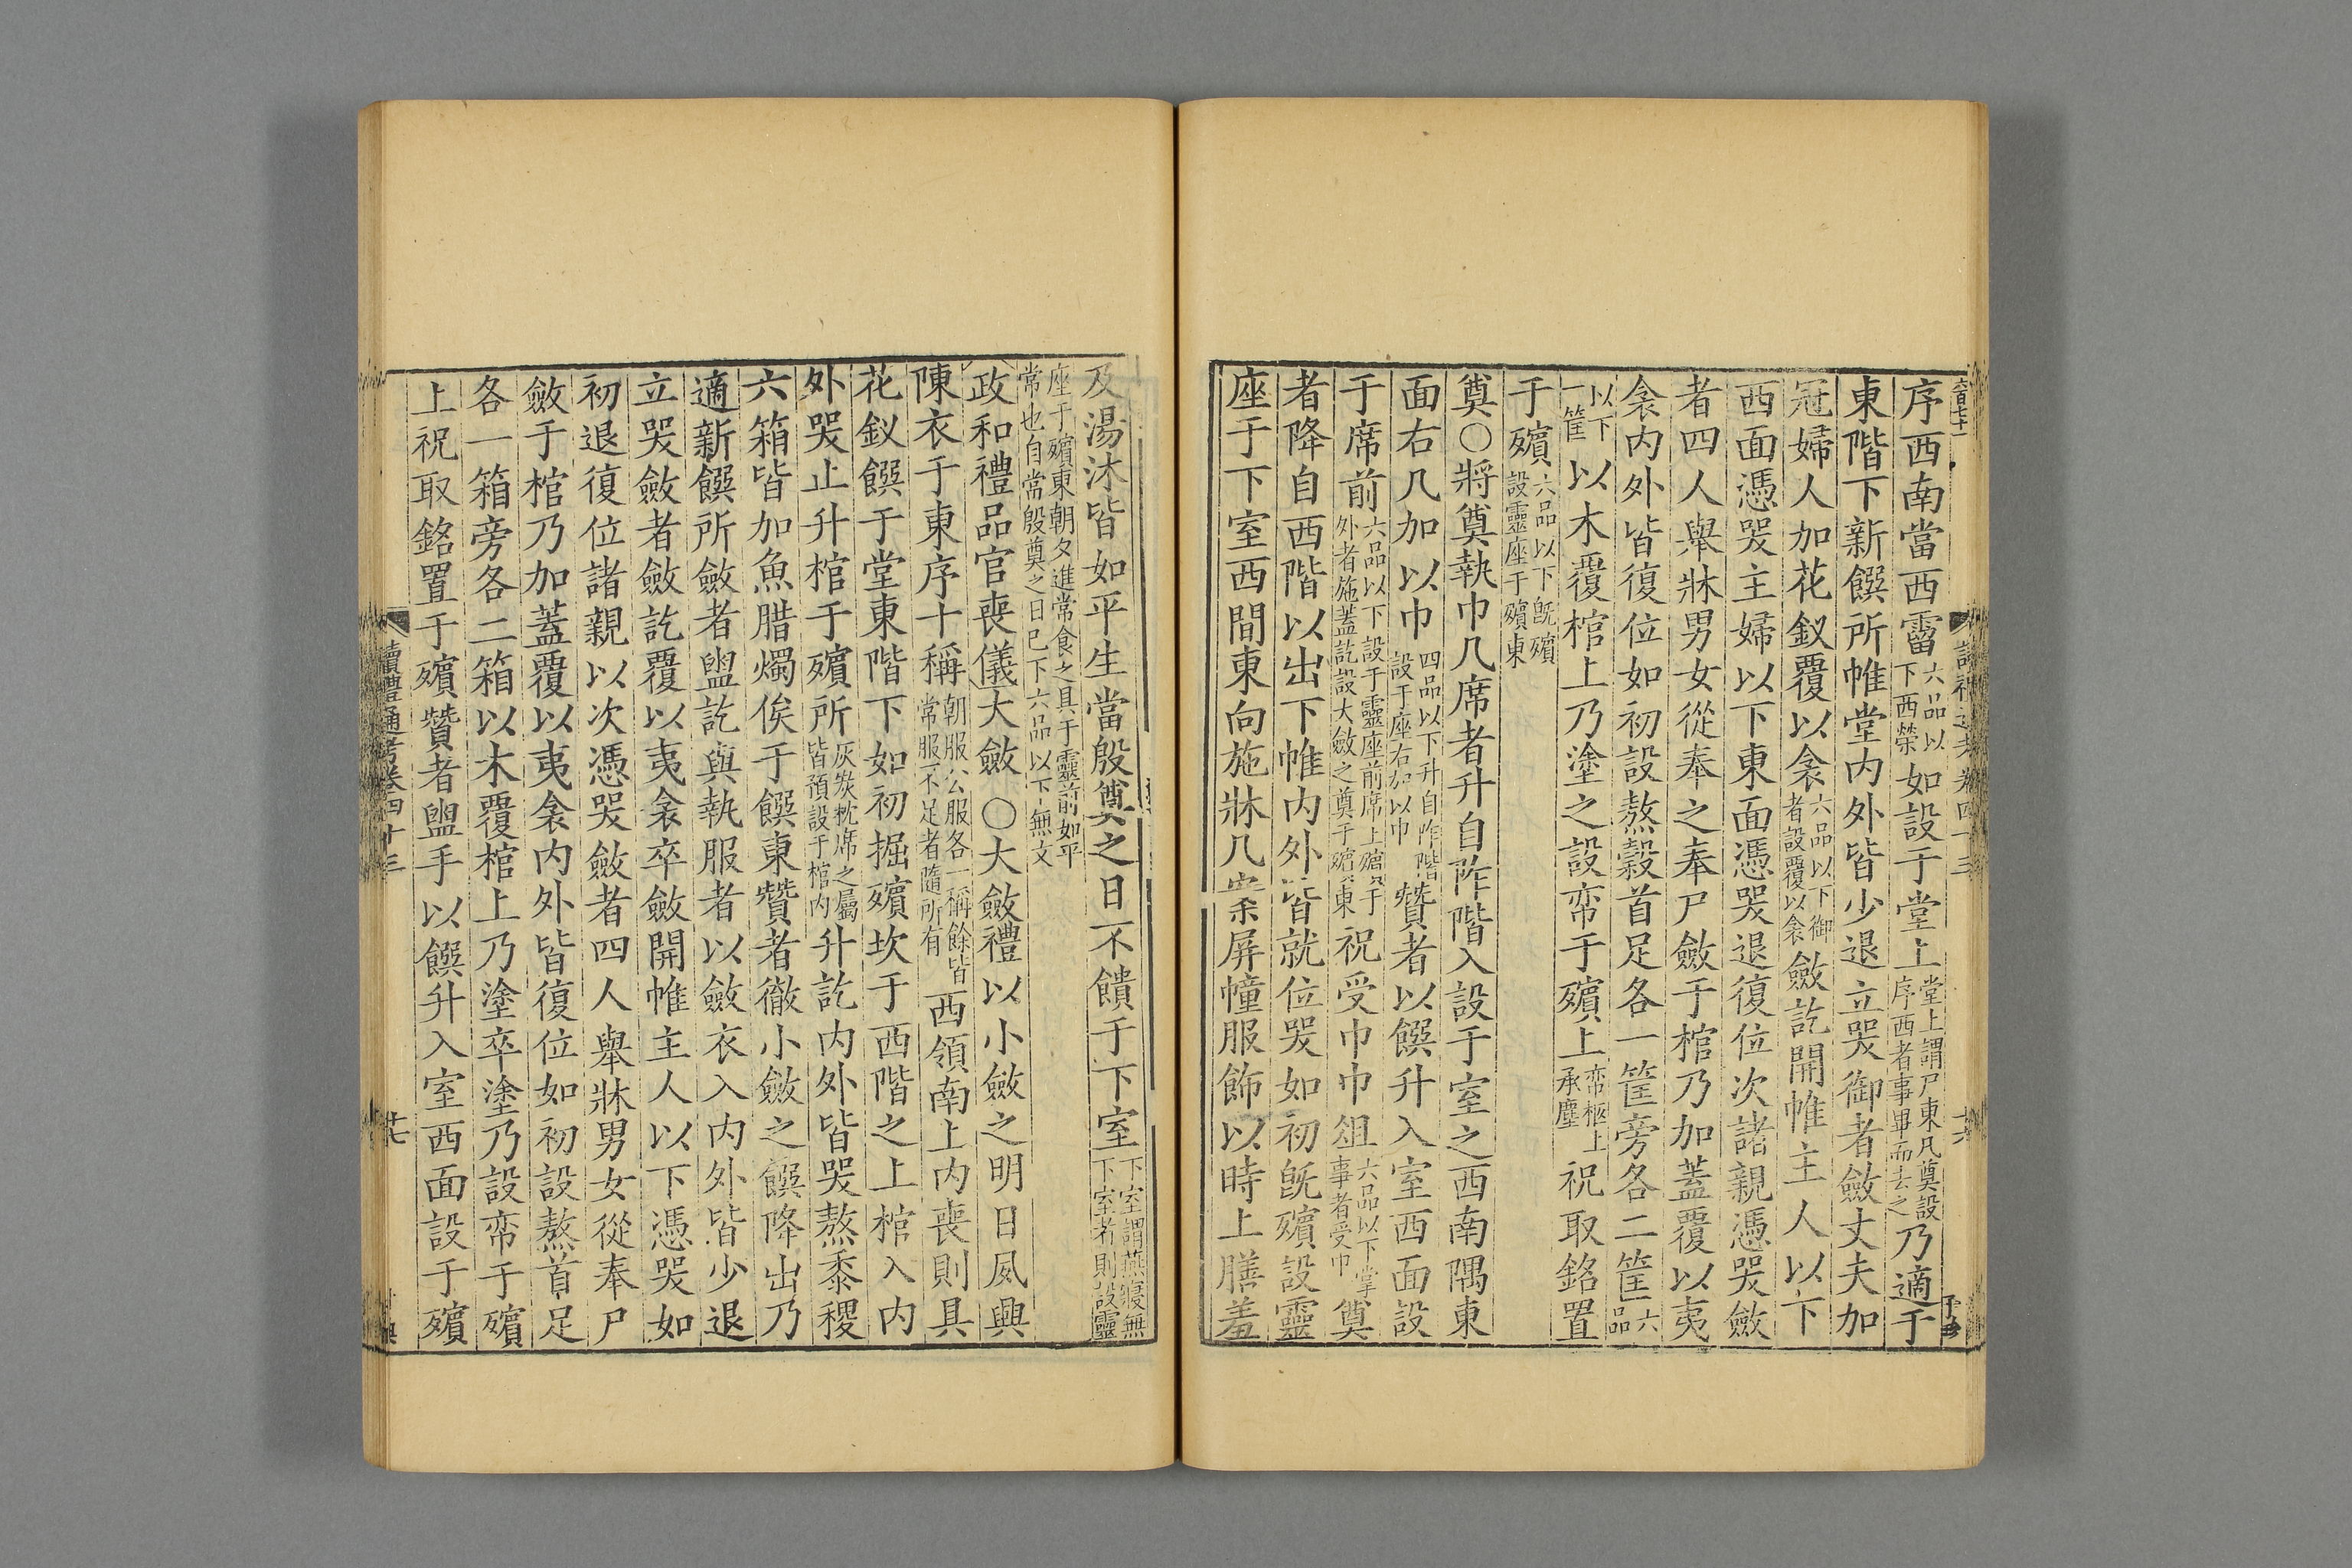 序西南當西霤六品以下西榮如設于堂上堂上謂尸東凡奠設序西者事畢而去之乃適于
東階下新饌所帷堂內外皆少退立哭御者斂丈夫加
冠婦人加花釵覆以衾六品以下御者設覆以衾斂訖開帷主人以下
西面憑哭主婦以下東面憑哭退復位次諸親憑哭斂
者四人舉牀男女從奉之奉尸斂于棺乃加蓋覆以夷
衾內外皆復位如初設熬穀首足各一筐旁各二筐六品
以下一筐以木覆棺上乃塗之設帟于殯上帟柩上承塵祝取銘置
于殯六品以下旣殯設靈座于殯東
奠○將奠執巾几席者升自阼階入設于室之西南隅東
面右几加以巾四品以下升自阼階設于座右加以巾贊者以饌升入室西面設
于席前六品以下設于靈座前席上殯于外者施蓋訖設大斂之奠于殯東祝受巾巾俎六品以下掌事者受巾奠
者降自西階以出下帷內外皆就位哭如初旣殯設靈
座于下室西間東向施牀几案屏幢服飾以時上膳羞
及湯沐皆如平生當殷奠之日不饋于下室下室謂燕寢無下室者則設靈
座于殯東朝夕進常食之具于靈前如平常也自常殷奠之日已下六品以下無文
政和禮品官喪儀大斂○大斂禮以小斂之明日夙興
陳衣于東序十稱朝服公服各一稱餘皆常服不足者隨所有西領南上內喪則具
花釵饌于堂東階下如初掘殯坎于西階之上棺入內
外哭止升棺于殯所灰炭枕席之屬皆預設于棺內升訖內外皆哭熬黍稷
六箱皆加魚腊燭俟于饌東贊者徹小斂之饌降出乃
適新饌所斂者盥訖與執服者以斂衣入內外皆少退
立哭斂者斂訖覆以夷衾卒斂開帷主人以下憑哭如
初退復位諸親以次憑哭斂者四人舉牀男女從奉尸
斂于棺乃加蓋覆以夷衾內外皆復位如初設熬首足
各一箱旁各二箱以木覆棺上乃塗卒塗乃設帟于殯
上祝取銘置于殯贊者盥手以饌升入室西面設于殯
讀禮通考卷四十三